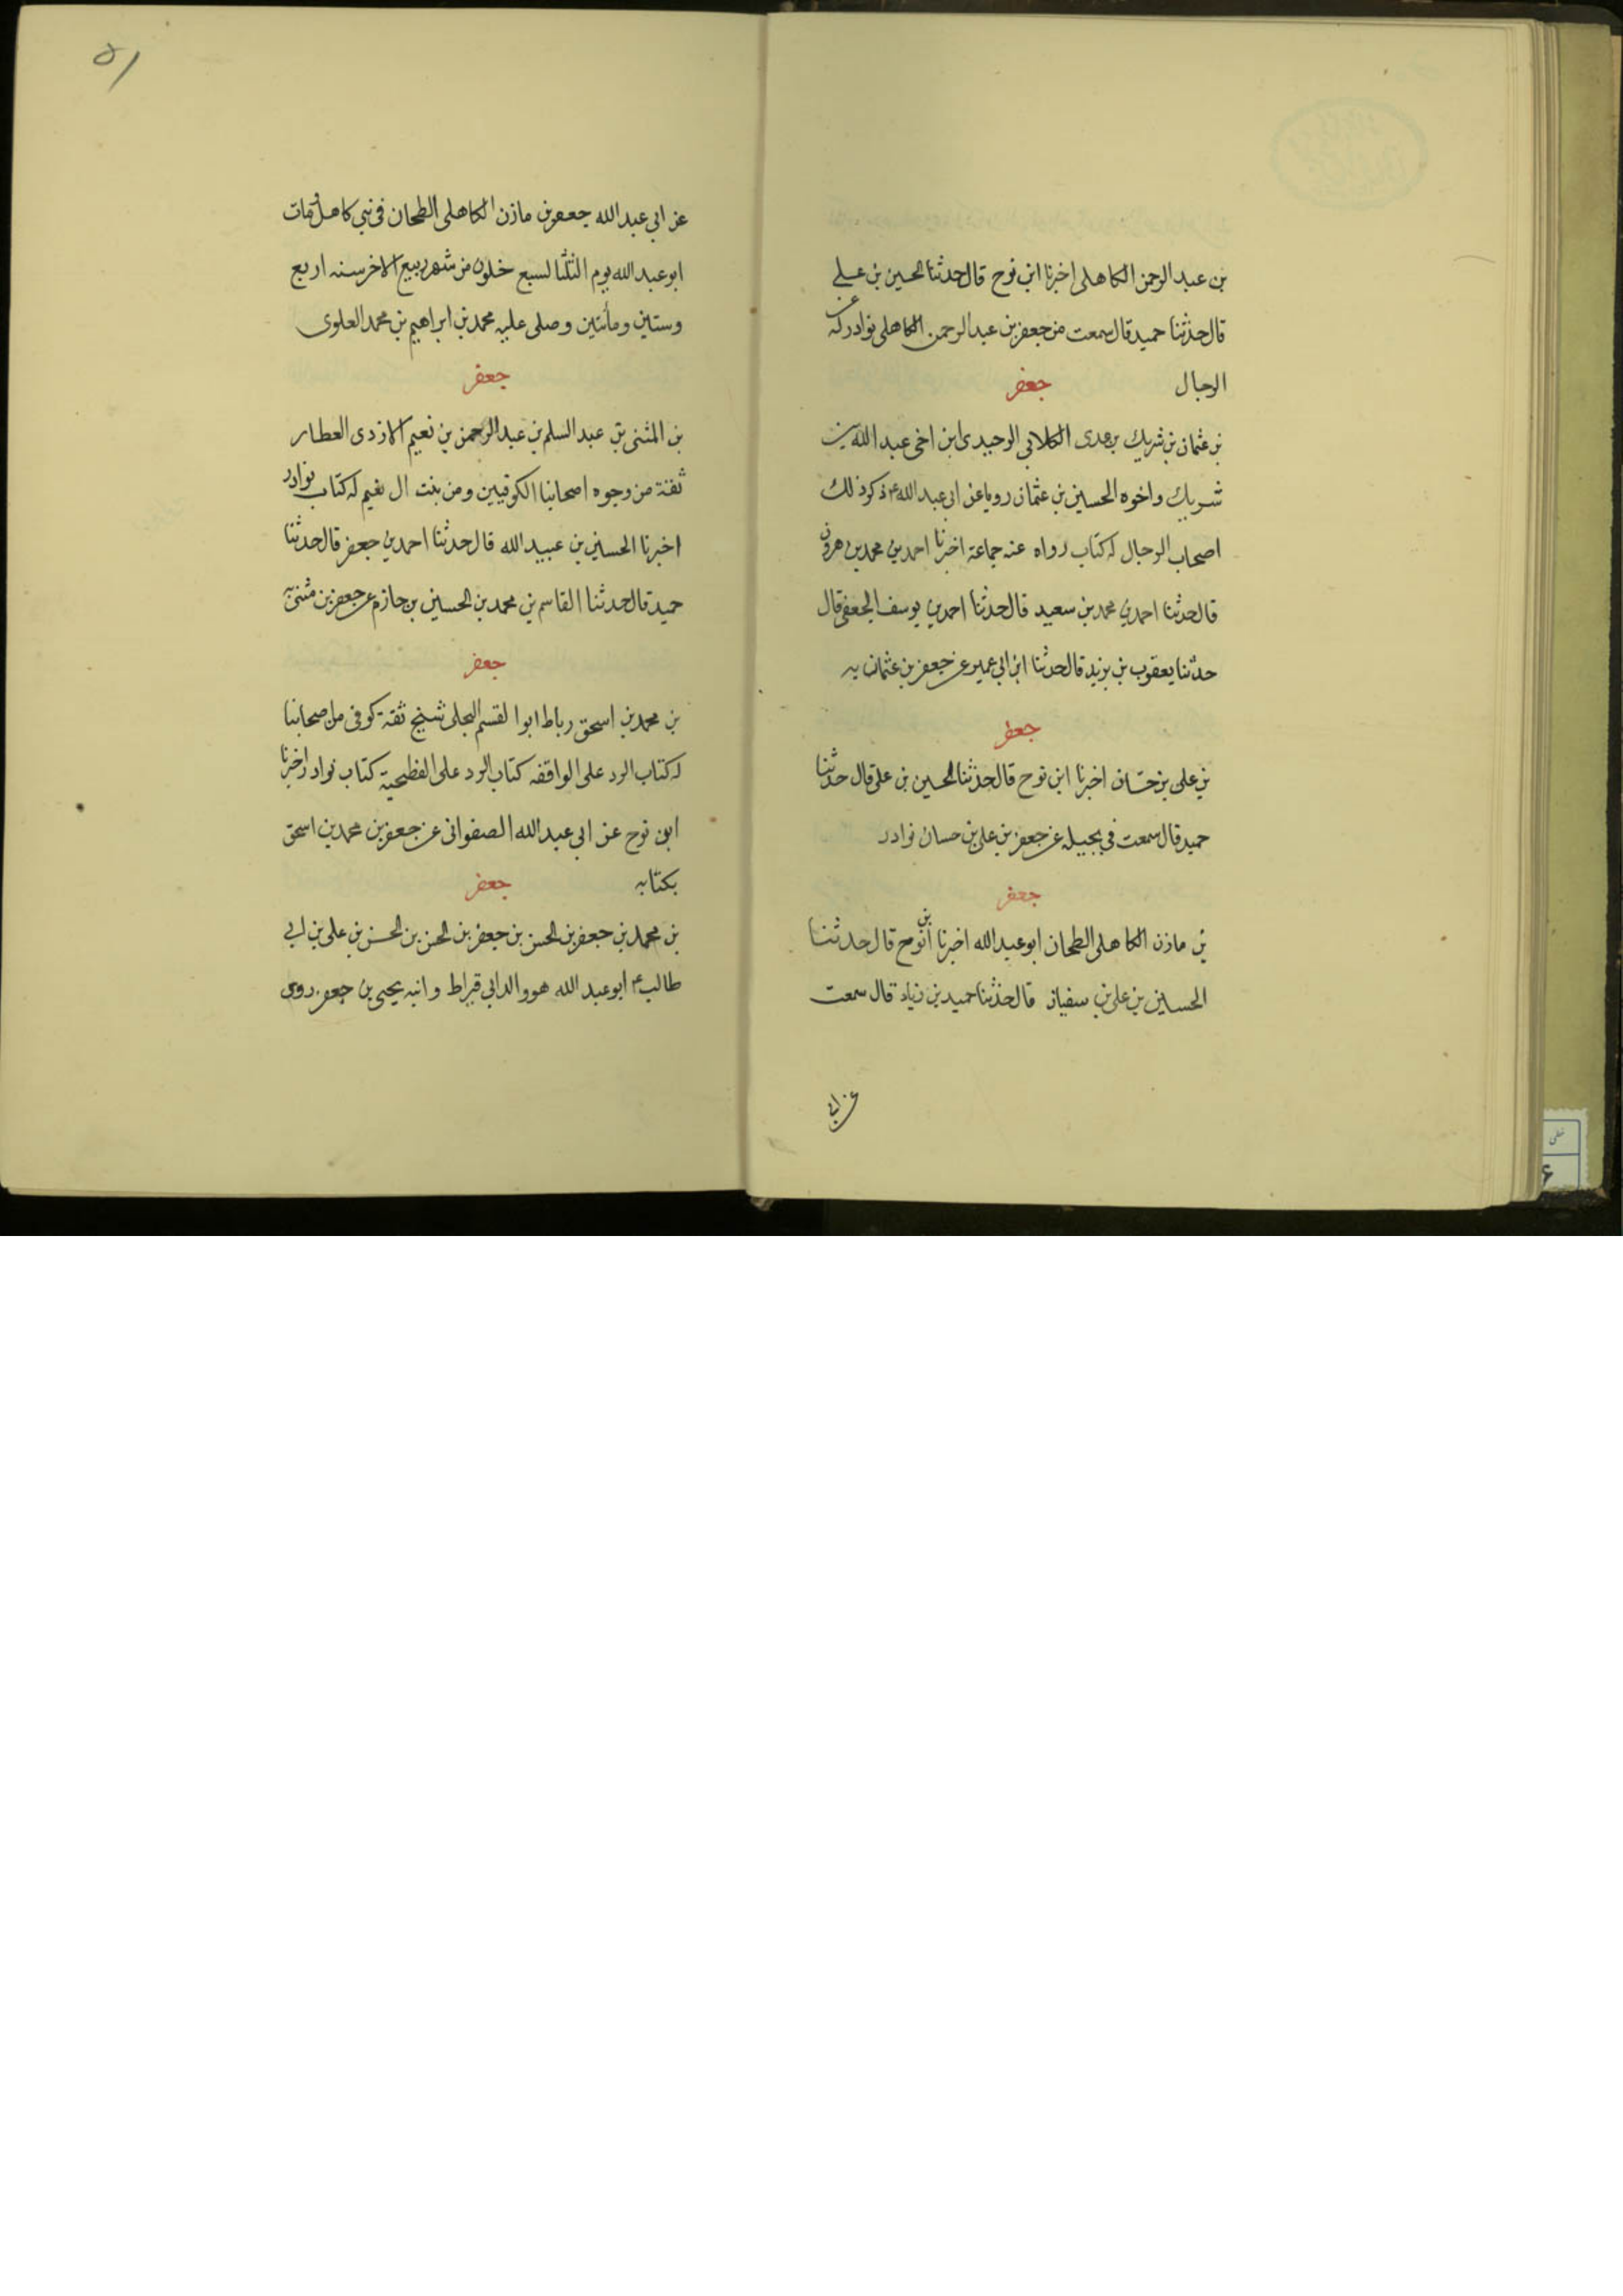 بن عبد الرحمن الكاهلى اخبرنا ابن نوح قال حدثنا الحسين بن على
قال حدثنا حميد قال سمعت من جعفر بن عبد الرحمن الكاهلى نوادر له عن
الرجال جعفر
بن عثمان بن شريك بن عدى الكلابي الوحيدى ابن اخى عبد الله بن
شريك واخوه الحسين بن عثمان رويا عن ابى عبد الله ع ذكر ذلك
اصحاب الرجال له كتاب رواه عنه جماعة اخبرنا احمد بن محمد بن هرون
قال حدثنا احمد بن محمد بن سعيد قال حدثنا احمد بن يوسف الجعفى قال
حدثنا يعقوب بن يزيد قال حدثنا ابن ابى عمير عن جعفر بن عثمان به
جعفر
بن على بن حسان اخبرنا ابن نوح قال حدثنا الحسين بن على قال حدثنا
حميد قال سمعت فى بجيله عن جعفر بن على بن حسان نوادر
جعفر
بن مازن الكاهلى الطحان ابو عبد الله اخبرنا ابن نوح قال حدثنا
الحسين بن على بن سفيان قال حدثنا حميد بن زياد قال سمعت
عن ابى
۵۱
عن ابي عبد الله جعفر بن مازن الكاهلى الطحان فى بنى كاهل ومات
ابو عبد الله يوم الثلثا لسبع خلون من شهر ربيع الاخر سنه اربع
وستين ومأتين وصلى عليه محمد بن ابراهيم بن محمد العلوى
جعفر
بن المثنى بن عبد السلم بن عبد الرحمن بن نعيم الازدى العطار
ثقة من وجوه اصحابنا الكوفيين ومن بيت ال نعيم له كتاب نوادر
اخبرنا الحسين بن عبيد الله قال حدثنا احمد بن جعفر قال حدثنا
حميد قال حدثنا القاسم بن محمد بن الحسين بن حازم عن جعفر بن مثنى به
جعفر
بن محمد بن اسحق رباط ابوا لقسم البجلى شيخ ثقة كوفى من اصحابنا
له كتاب الرد على الواقفه كتاب الرد على الفطحية كتاب نوادر اخبرنا
ابن نوح عن ابى عبد الله الصفوانى عن جعفر بن محمد بن اسحق
بكتابه جعفر
بن محمد بن جعفر بن الحسن بن جعفر بن الحسن بن الحسن بن على بن ابي
طالب ع ابو عبد الله هو والد ابي قيراط وابنه يحيى بن جعفر روى